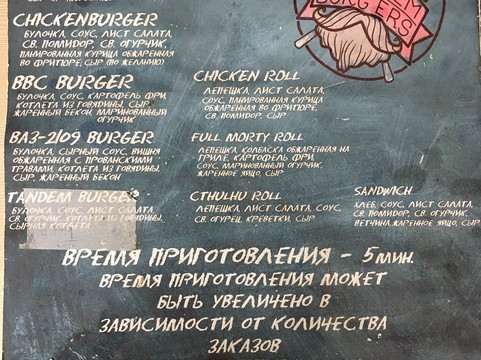 CHICKENBURGER
БУЛОЧКА, СОУС, ЛИСТ САЛАТА,
СВ. ПОМИДОР, СВ. ОГУРЧИК,
ПАНИРОВАННАЯ КУРИЦА ОБЖАРЕННАЯ
ВО ФРИТЮРЕ, СЫР (ПО ЖЕЛАНИЮ)
BBC BURGER
БУЛОЧКА, СОУС, КАРТОФЕЛЬ ФРИ,
КОТЛЕТА ИЗ ГОВЯДИНЫ, СЫР,
ЖАРЕННЫЙ БЕКОН, МАРИНОВАННЫЙ
ОГУРЧИК
ВАЗ-2109 BURGER
БУЛОЧКА, СЫРНЫЙ СОУС, ВИШНЯ
ОБЖАРЕННАЯ С ПРОВАНСКИМИ
ТРАВАМИ, КОТЛЕТА ИЗ ГОВЯДИНЫ,
СЫР, ЖАРЕННЫЙ БЕКОН
TANDEM BURGER
БУЛОЧКА, СОУС, ЛИСТ САЛАТА
СВ. ОГУРЧИК, КОТЛЕТА ИЗ ГОВЯДИНЫ,
СЫРНАЯ КОТЛЕТА
BURGERS
CHICKEN ROLL
ЛЕПЕШКА, ЛИСТ САЛАТА,
СОУС, ПАНИРОВАННАЯ КУРИЦА
ОБЖАРЕННАЯ ВО ФРИТЮРЕ,
СВ. ПОМИДОР, СЫР
FULL MORTY ROLL
ЛЕПЕШКА, КОЛБАСКА ОБЖАРЕННАЯ НА
ГРИЛЕ, КАРТОФЕЛЬ ФРИ,
СОУС, МАРИНОВАННЫЙ ОГУРЧИК,
ЖАРЕНОЕ ЯЙЦО, СЫР
CTHULHU ROLL
ЛЕПЕШКА, ЛИСТ САЛАТА, СОУС,
СВ. ОГУРЕЦ, КРЕВЕТКИ, СЫР
SANDWICH
ХЛЕБ, СОУС, ЛИСТ САЛАТА,
СВ. ПОМИДОР, СВ. ОГУРЧИК,
ВЕТЧИНА, ЖАРЕНОЕ ЯЙЦО, СЫР
ВРЕМЯ ПРИГОТОВЛЕНИЯ - 5 МИН.
ВРЕМЯ ПРИГОТОВЛЕНИЯ МОЖЕТ
БЫТЬ УВЕЛИЧЕНО В
ЗАВИСИМОСТИ ОТ КОЛИЧЕСТВА
ЗАКАЗОВ